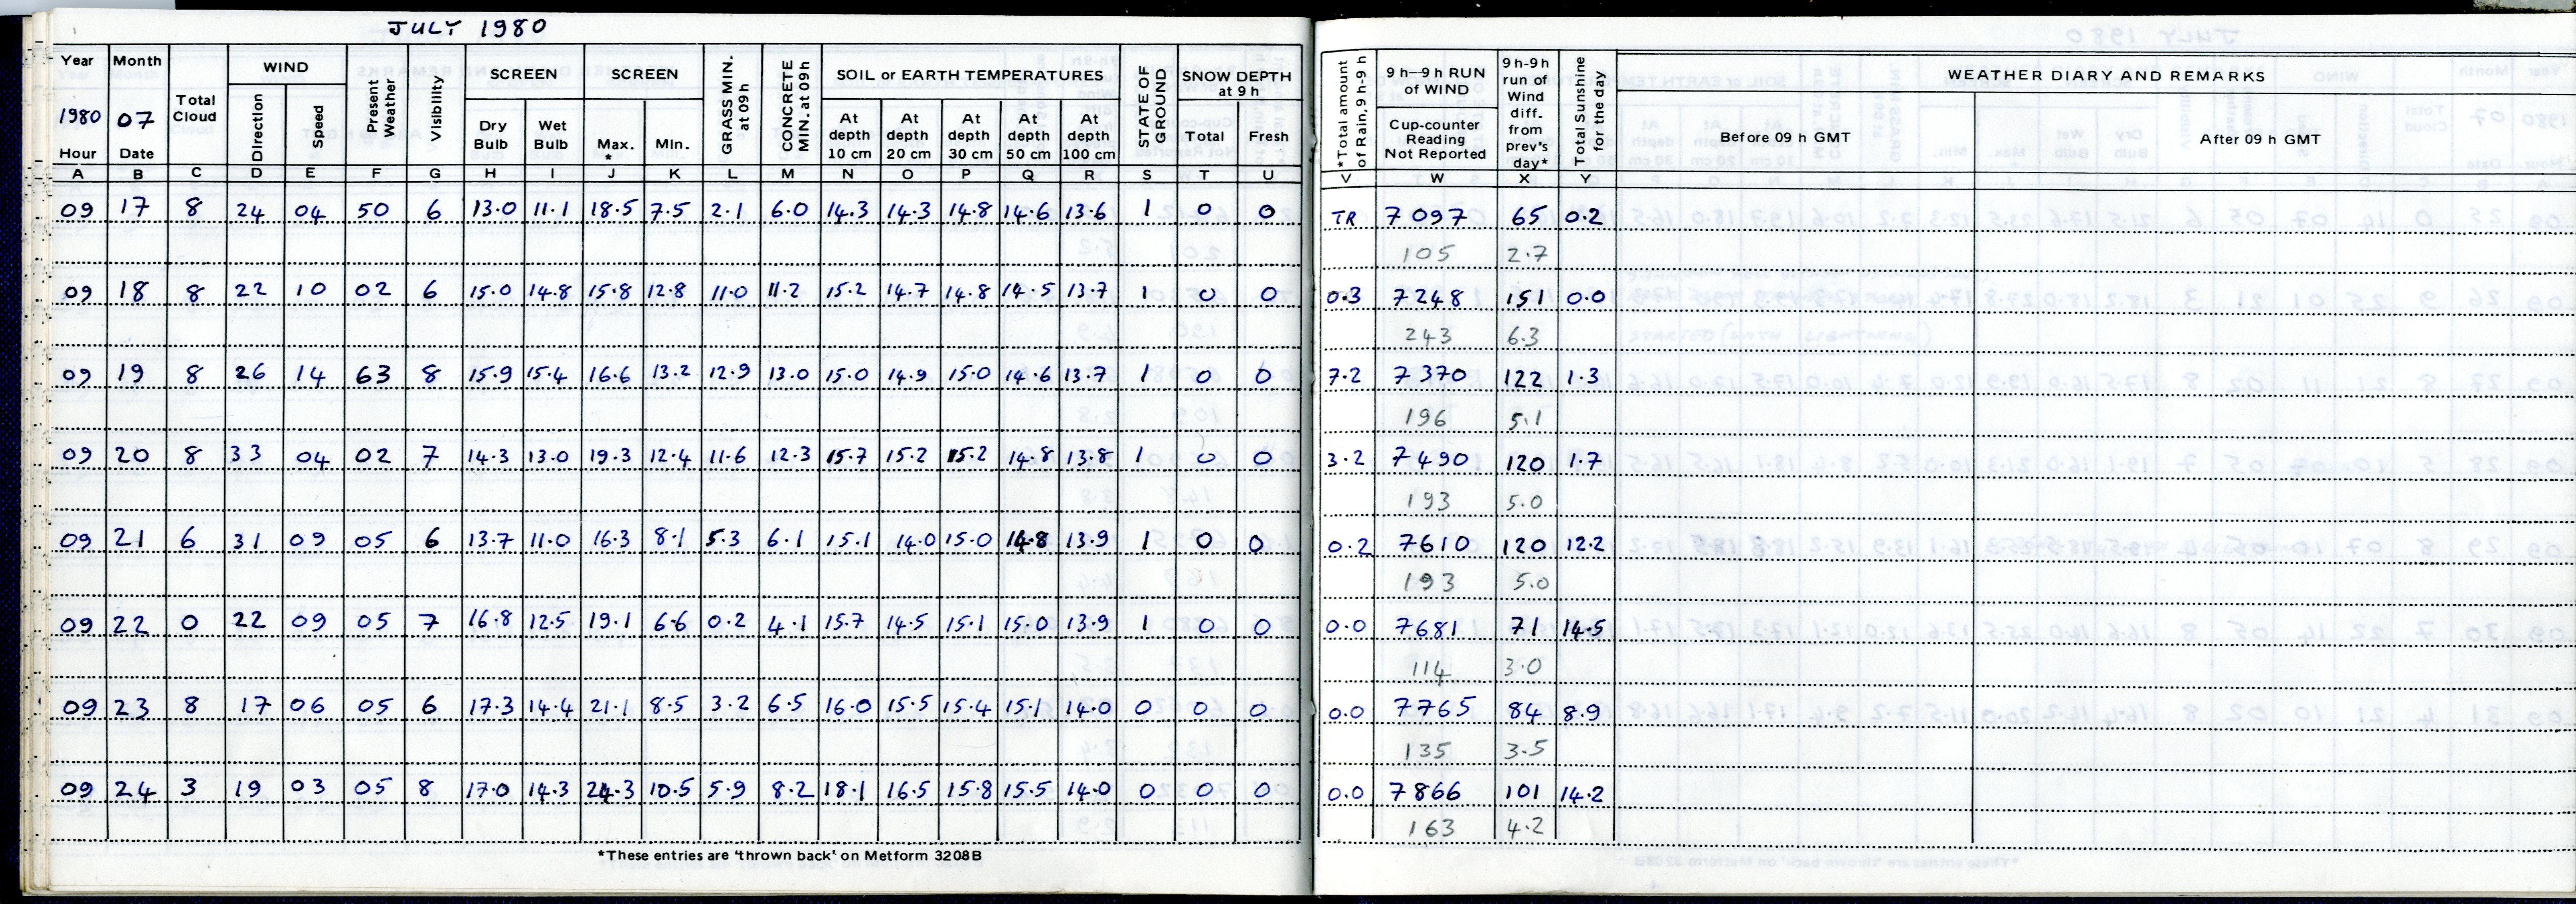 JULY 1980
Year Month Total Cloud WIND Present Weather Visibility SCREEN SCREEN GRASS MIN. at 09h CONCRETE MIN. at 09h SOIL or EARTH TEMPERATURES STATE OF GROUND SNOW DEPTH at 9 h *Total amount of Rain, 9h-9 h 9 h—9 h RUN of WIND 9 h-9 h run of Wind diff. from prev's day* Total Sunshine for the day WEATHER DIARY AND REMARKS
1980 07 Direction Speed Dry Bulb Wet Bulb Max. * Min. At depth 10 cm At depth 20 cm At depth 30 cm At depth 50 cm At depth 100 cm Total Fresh Cup-counter Reading Not Reported Before 09 h GMT After 09 h GMT
Hour Date
A B C D E F G H I J K L M N O P Q R S T U V W X Y
09 17 8 24 04 50 6 13.0 11.1 18.5 7.5 2.1 6.0 14.3 14.3 14.8 14.6 13.6 1 0 0 TR 7097 65 0.2
105 2.7
09 18 8 22 10 02 6 15.0 14.8 15.8 12.8 11.0 11.2 15.2 14.7 14.8 14.5 13.7 1 0 0 0.3 7248 151 0.0
243 6.3
09 19 8 26 14 63 8 15.9 15.4 16.6 13.2 12.9 13.0 15.0 14.9 15.0 14.6 13.7 1 0 0 7.2 7370 122 1.3
196 5.1
09 20 8 33 04 02 7 14.3 13.0 19.3 12.4 11.6 12.3 15.7 15.2 15.2 14.8 13.8 1 0 0 3.2 7490 120 1.7
193 5.0
09 21 6 31 09 05 6 13.7 11.0 16.3 8.1 5.3 6.1 15.1 14.0 15.0 14.8 13.9 1 0 0 0.2 7610 120 12.2
193 5.0
09 22 0 22 09 05 7 16.8 12.5 19.1 6.6 0.2 4.1 15.7 14.5 15.1 15.0 13.9 1 0 0 0.0 7681 71 14.5
114 3.0
09 23 8 17 06 05 6 17.3 14.4 21.1 8.5 3.2 6.5 16.0 15.5 15.4 15.1 14.0 0 0 0 0.0 7765 84 8.9
135 3.5
09 24 3 19 03 05 8 17.0 14.3 24.3 10.5 5.9 8.2 18.1 16.5 15.8 15.5 14.0 0 0 0 0.0 7866 101 14.2
163 4.2
*These entries are 'thrown back' on Metform 3208B